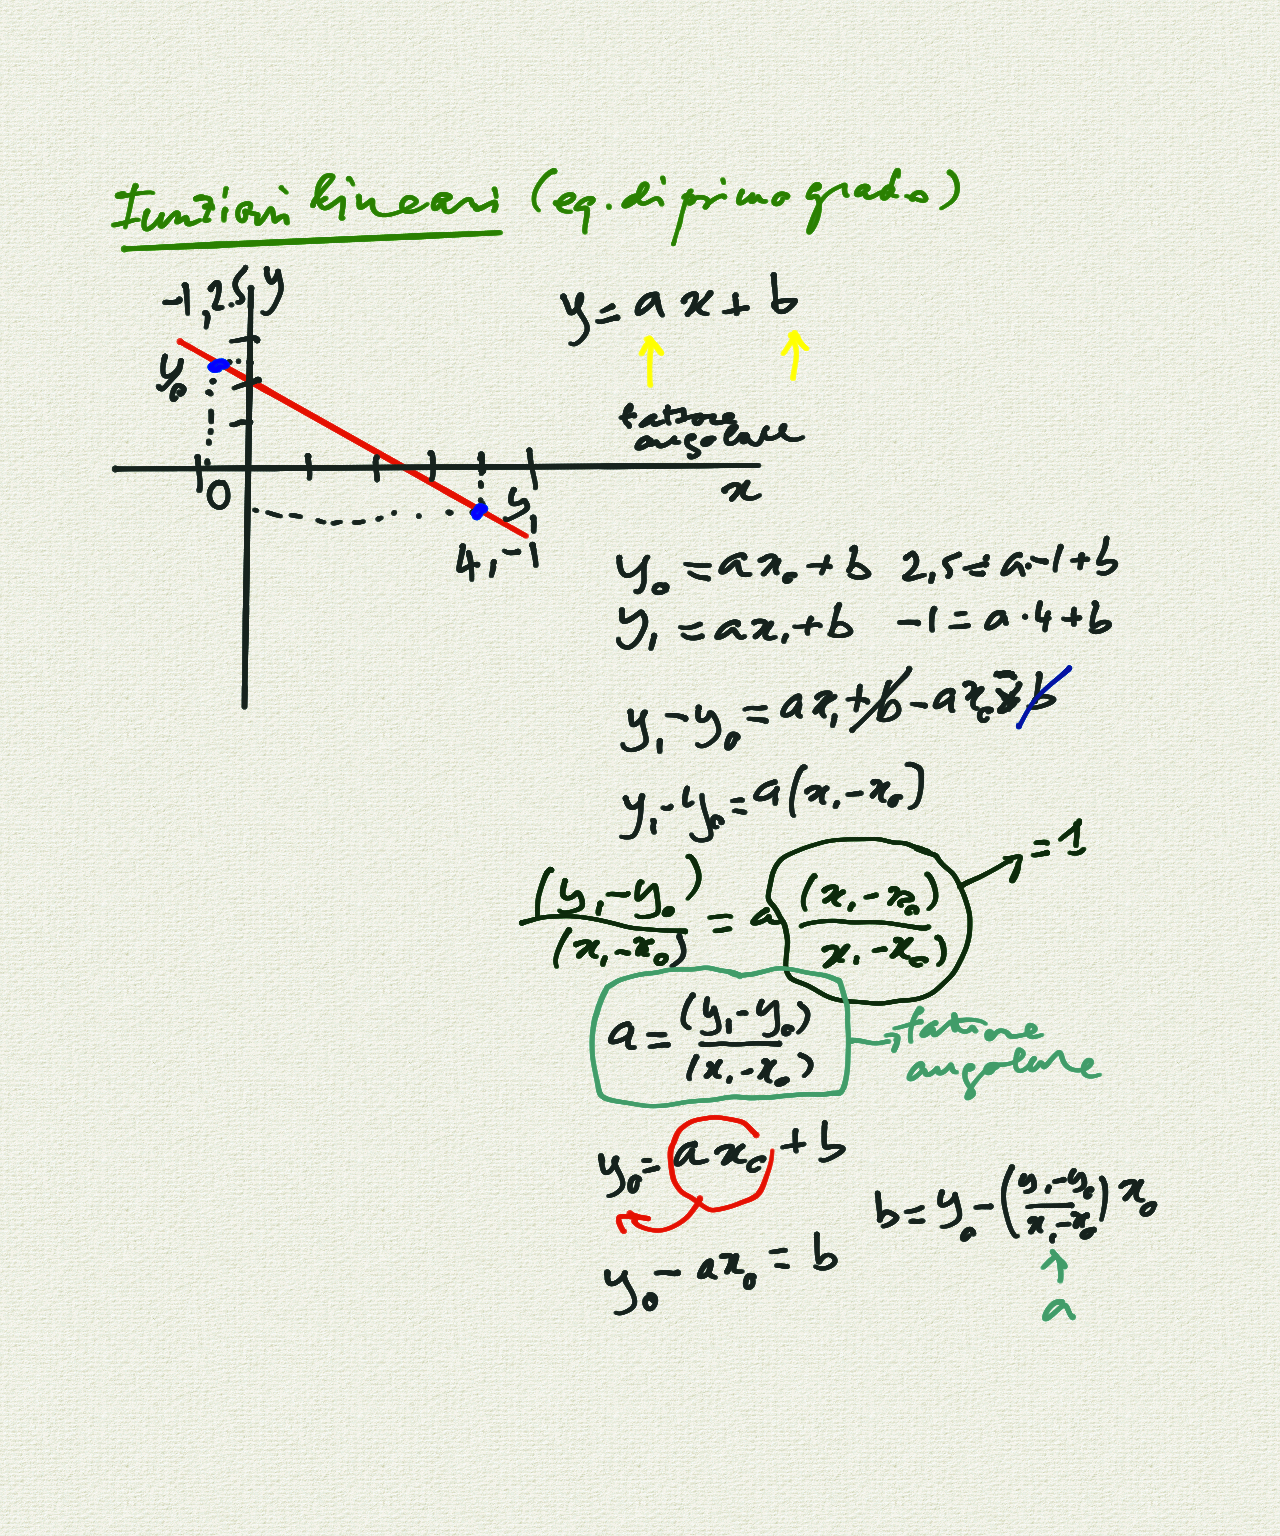 Funzioni lineari (eq. di primo grado)
-1, 2.5 y
y = a x + b
y₀
fattore
angolare
0
x
y₁
4, -1
y₀ = a x₀ + b 2,5 = a · -1 + b
y₁ = a x₁ + b -1 = a · 4 + b
y₁ - y₀ = a x₁ + b - a x₀ - b
y₁ - y₀ = a (x₁ - x₀)
(y₁ - y₀) / (x₁ - x₀) = a (x₁ - x₀) / x₁ - x₀) = 1
a = (y₁ - y₀) / (x₁ - x₀) → fattore
angolare
y₀ = a x₀ + b
b = y₀ - (y₁ - y₀ / x₁ - x₀) x₀
y₀ - a x₀ = b
a